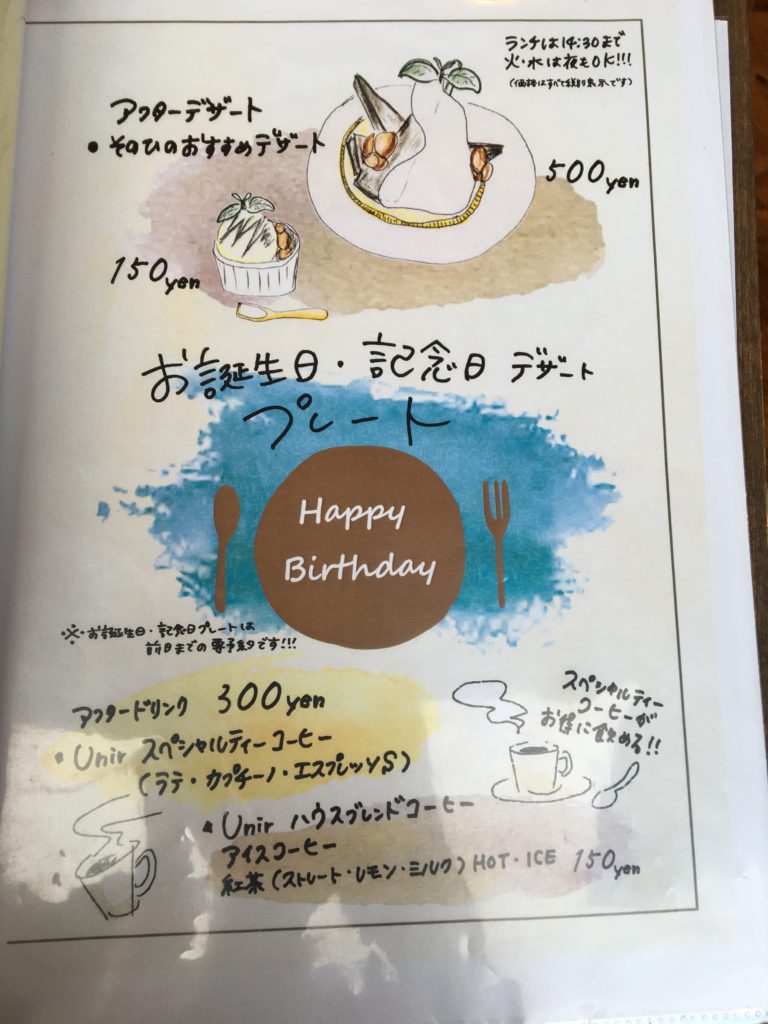 ランチは14:30まで
火・水は夜もOK!!!
(価格はすべて税別表示です)
アフターデザート
• そのひのおすすめデザート
500yen
150yen
お誕生日・記念日 デザート
プレート
Happy
Birthday
※・お誕生日・記念日プレートは
前日までの要予約です!!!
アフタードリンク 300yen
スペシャルティー
コーヒーが
お得に飲める!!
• Unir スペシャルティーコーヒー
(ラテ・カプチーノ・エスプレッソS)
• Unir ハウスブレンドコーヒー
アイスコーヒー
紅茶(ストレート・レモン・ミルク)HOT・ICE 150yen